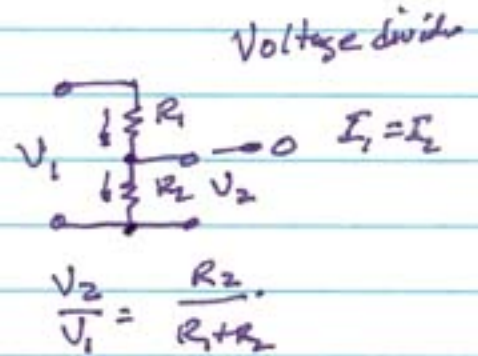 Voltage divider
R₁
I₁ = I₂
V₁
R₂ V₂
V₂/V₁ = R₂/(R₁+R₂)